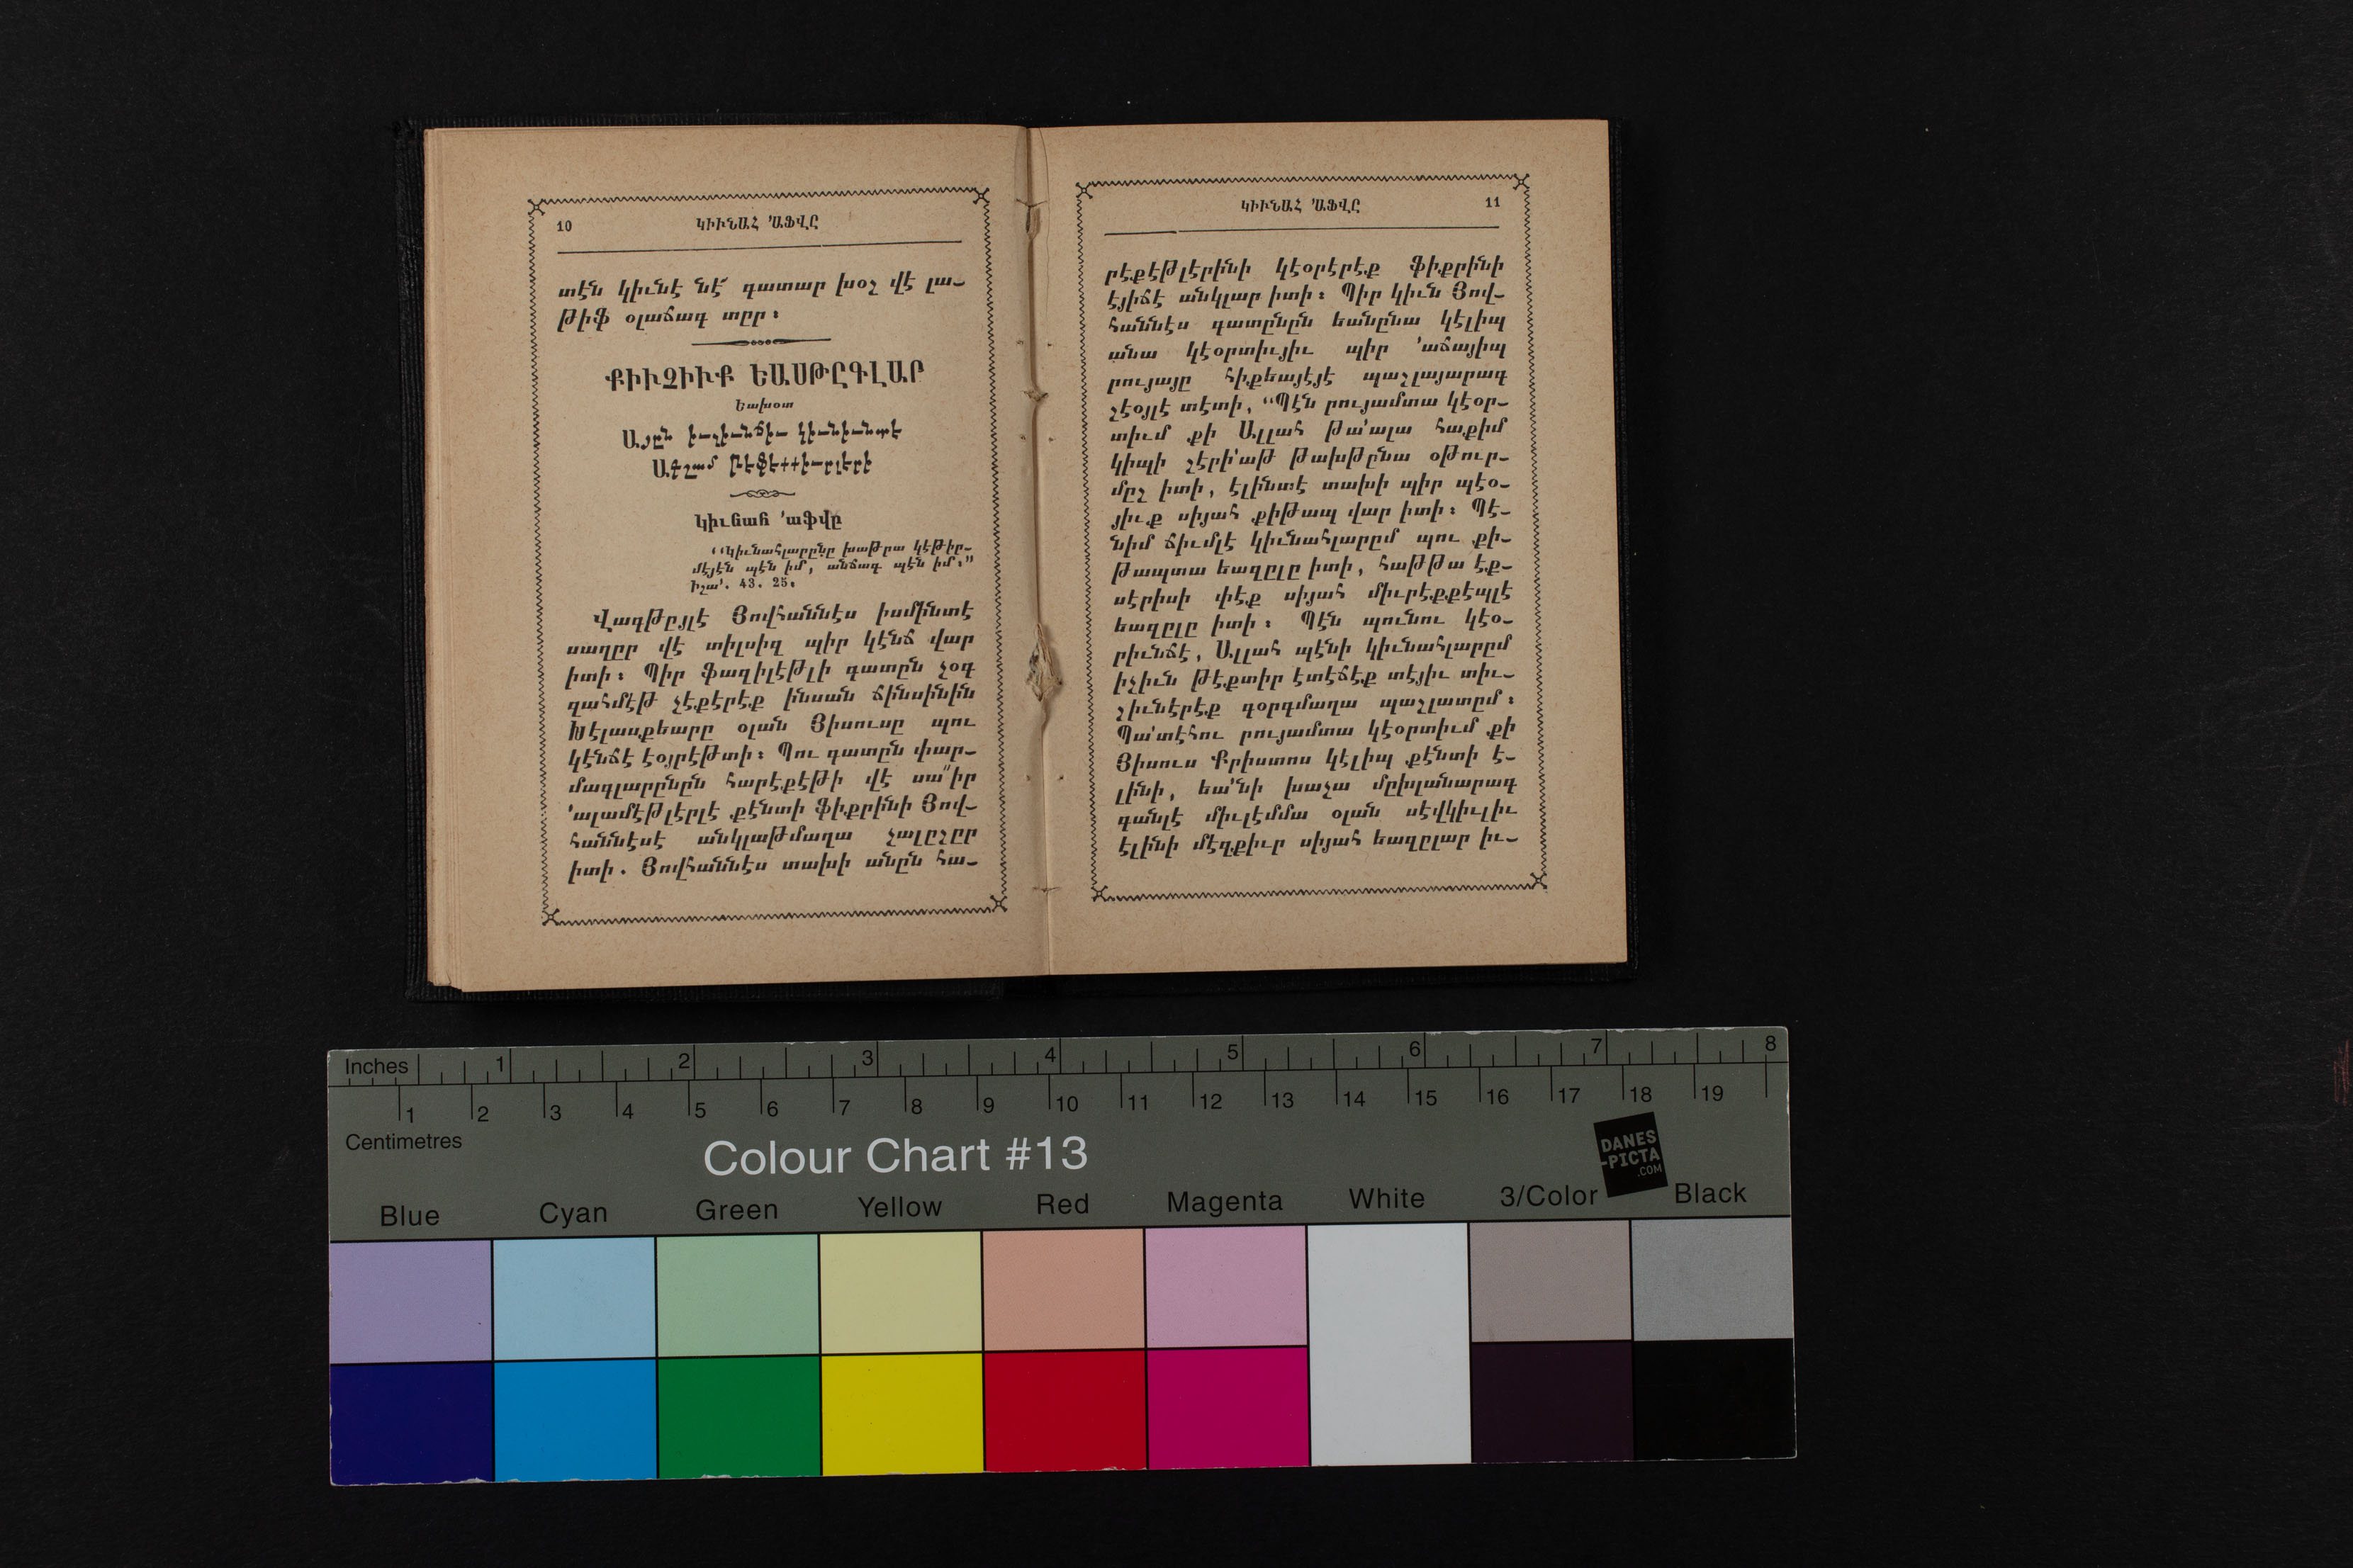 10 ԿԻՒՆԱՀ ՚ԱՖՎԸ
տէն կիւնէ նէ՜ գատար խօշ վէ լա֊
թիֆ օլաճագ տըր։
ՔԻՒՉԻՒՔ ԵԱՍԹԸԳԼԱՐ
Եախօտ
Այըն իւչիւնճիւ կիւնիւնտէ
Աքշամ
Կիւնահ ՚աֆվը
“Կիւնահլարընը խաթըրա կէթիր֊
մէյէն պէն իմ, անճագ պէն իմ։”
Իշա՚. 43. 25։
Վագթըյլէ Յովհաննէս իսմինտէ
սաղըր վէ տիլսիզ պիր կէնճ վար
իտի։ Պիր ֆազիլէթլի գատըն չօգ
զահմէթ չէքէրէք ինսան ճինսինին
Խէլասքեարը օլան Յիսուսը պու
կէնճէ էօյրէթտի։ Պու գատըն փար֊
մագլարընըն հարէքէթի վէ սա՛՛իր
՚ալամէթլէրլէ քէնտի ֆիքրինի Յով֊
հաննէսէ անկլաթմաղա չալըշըր
իտի. Յովհաննէս տախի անըն հա֊
ԿԻՒՆԱՀ ՚ԱՖՎԸ 11
րէքէթլէրինի կէօրէրէք ֆիքրինի
էյիճէ անկլար իտի։ Պիր կիւն Յով֊
հաննէս գատընըն եանընա կէլիպ
անա կէօրտիւյիւ պիր ՚աճայիպ
րույայը հիքեայէյէ պաշլայարագ
շէօյլէ տէտի, “Պէն րույամտա կէօր֊
տիւմ քի Ալլահ թա՚ալա հաքիմ
կիպի շէրի՚աթ թախթընա օթուր֊
մըշ իտի, էլինտէ տախի պիր պէօ֊
յիւք սիյահ քիթապ վար իտի։ Պէ֊
նիմ ճիւմլէ կիւնահլարըմ պու քի֊
թապտա եազըլը իտի, հաթթա էք֊
սէրիսի փէք սիյահ միւրէքքէպլէ
եազըլը իտի։ Պէն պունու կէօ֊
րիւնճէ, Ալլահ պէնի կիւնահլարըմ
իչիւն թէքտիր էտէճէք տէյիւ տիւ֊
շիւնէրէք գօրգմաղա պաշլատըմ։
Պա՚տէհու րույամտա կէօրտիւմ քի
Յիսուս Քրիստոս կէլիպ քէնտի է֊
լինի, եա՚նի խաչա մըխլանարագ
գանլէ միւլէմմա օլան սէվկիւլիւ
էլինի մէզքիւր սիյահ եազըլար իւ֊
Inches 1 2 3 4 5 6 7 8
1 2 3 4 5 6 7 8 9 10 11 12 13 14 15 16 17 18 19
Centimetres
Colour Chart #13
DANES
-PICTA
.COM
Blue Cyan Green Yellow Red Magenta White 3/Color Black